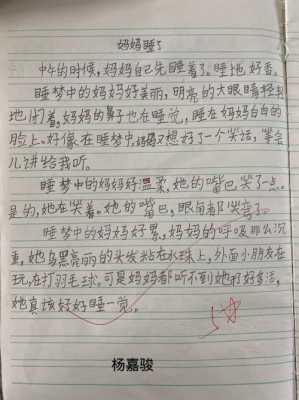 妈妈睡了
中午的时候,妈妈自己先睡着了。睡地好香。
睡梦中的妈妈好美丽,明亮的大眼睛轻轻
地闭着,妈妈的鼻子也在睡觉,睡在妈妈白白的
脸上。好像在睡梦中,妈妈又想好了一个笑话,等会
儿讲给我听。
睡梦中的妈妈好温柔,她的嘴巴笑了一点,
是的,她在笑着。她的嘴巴,眼角都笑弯了。
睡梦中的妈妈好累,妈妈的呼吸那么沉
重,她乌黑亮丽的头发粘在水珠上,外面小朋友在
玩,在打羽毛球,可是妈妈都听不到她

干了好多活,
她真该好好睡一觉。
杨嘉骏